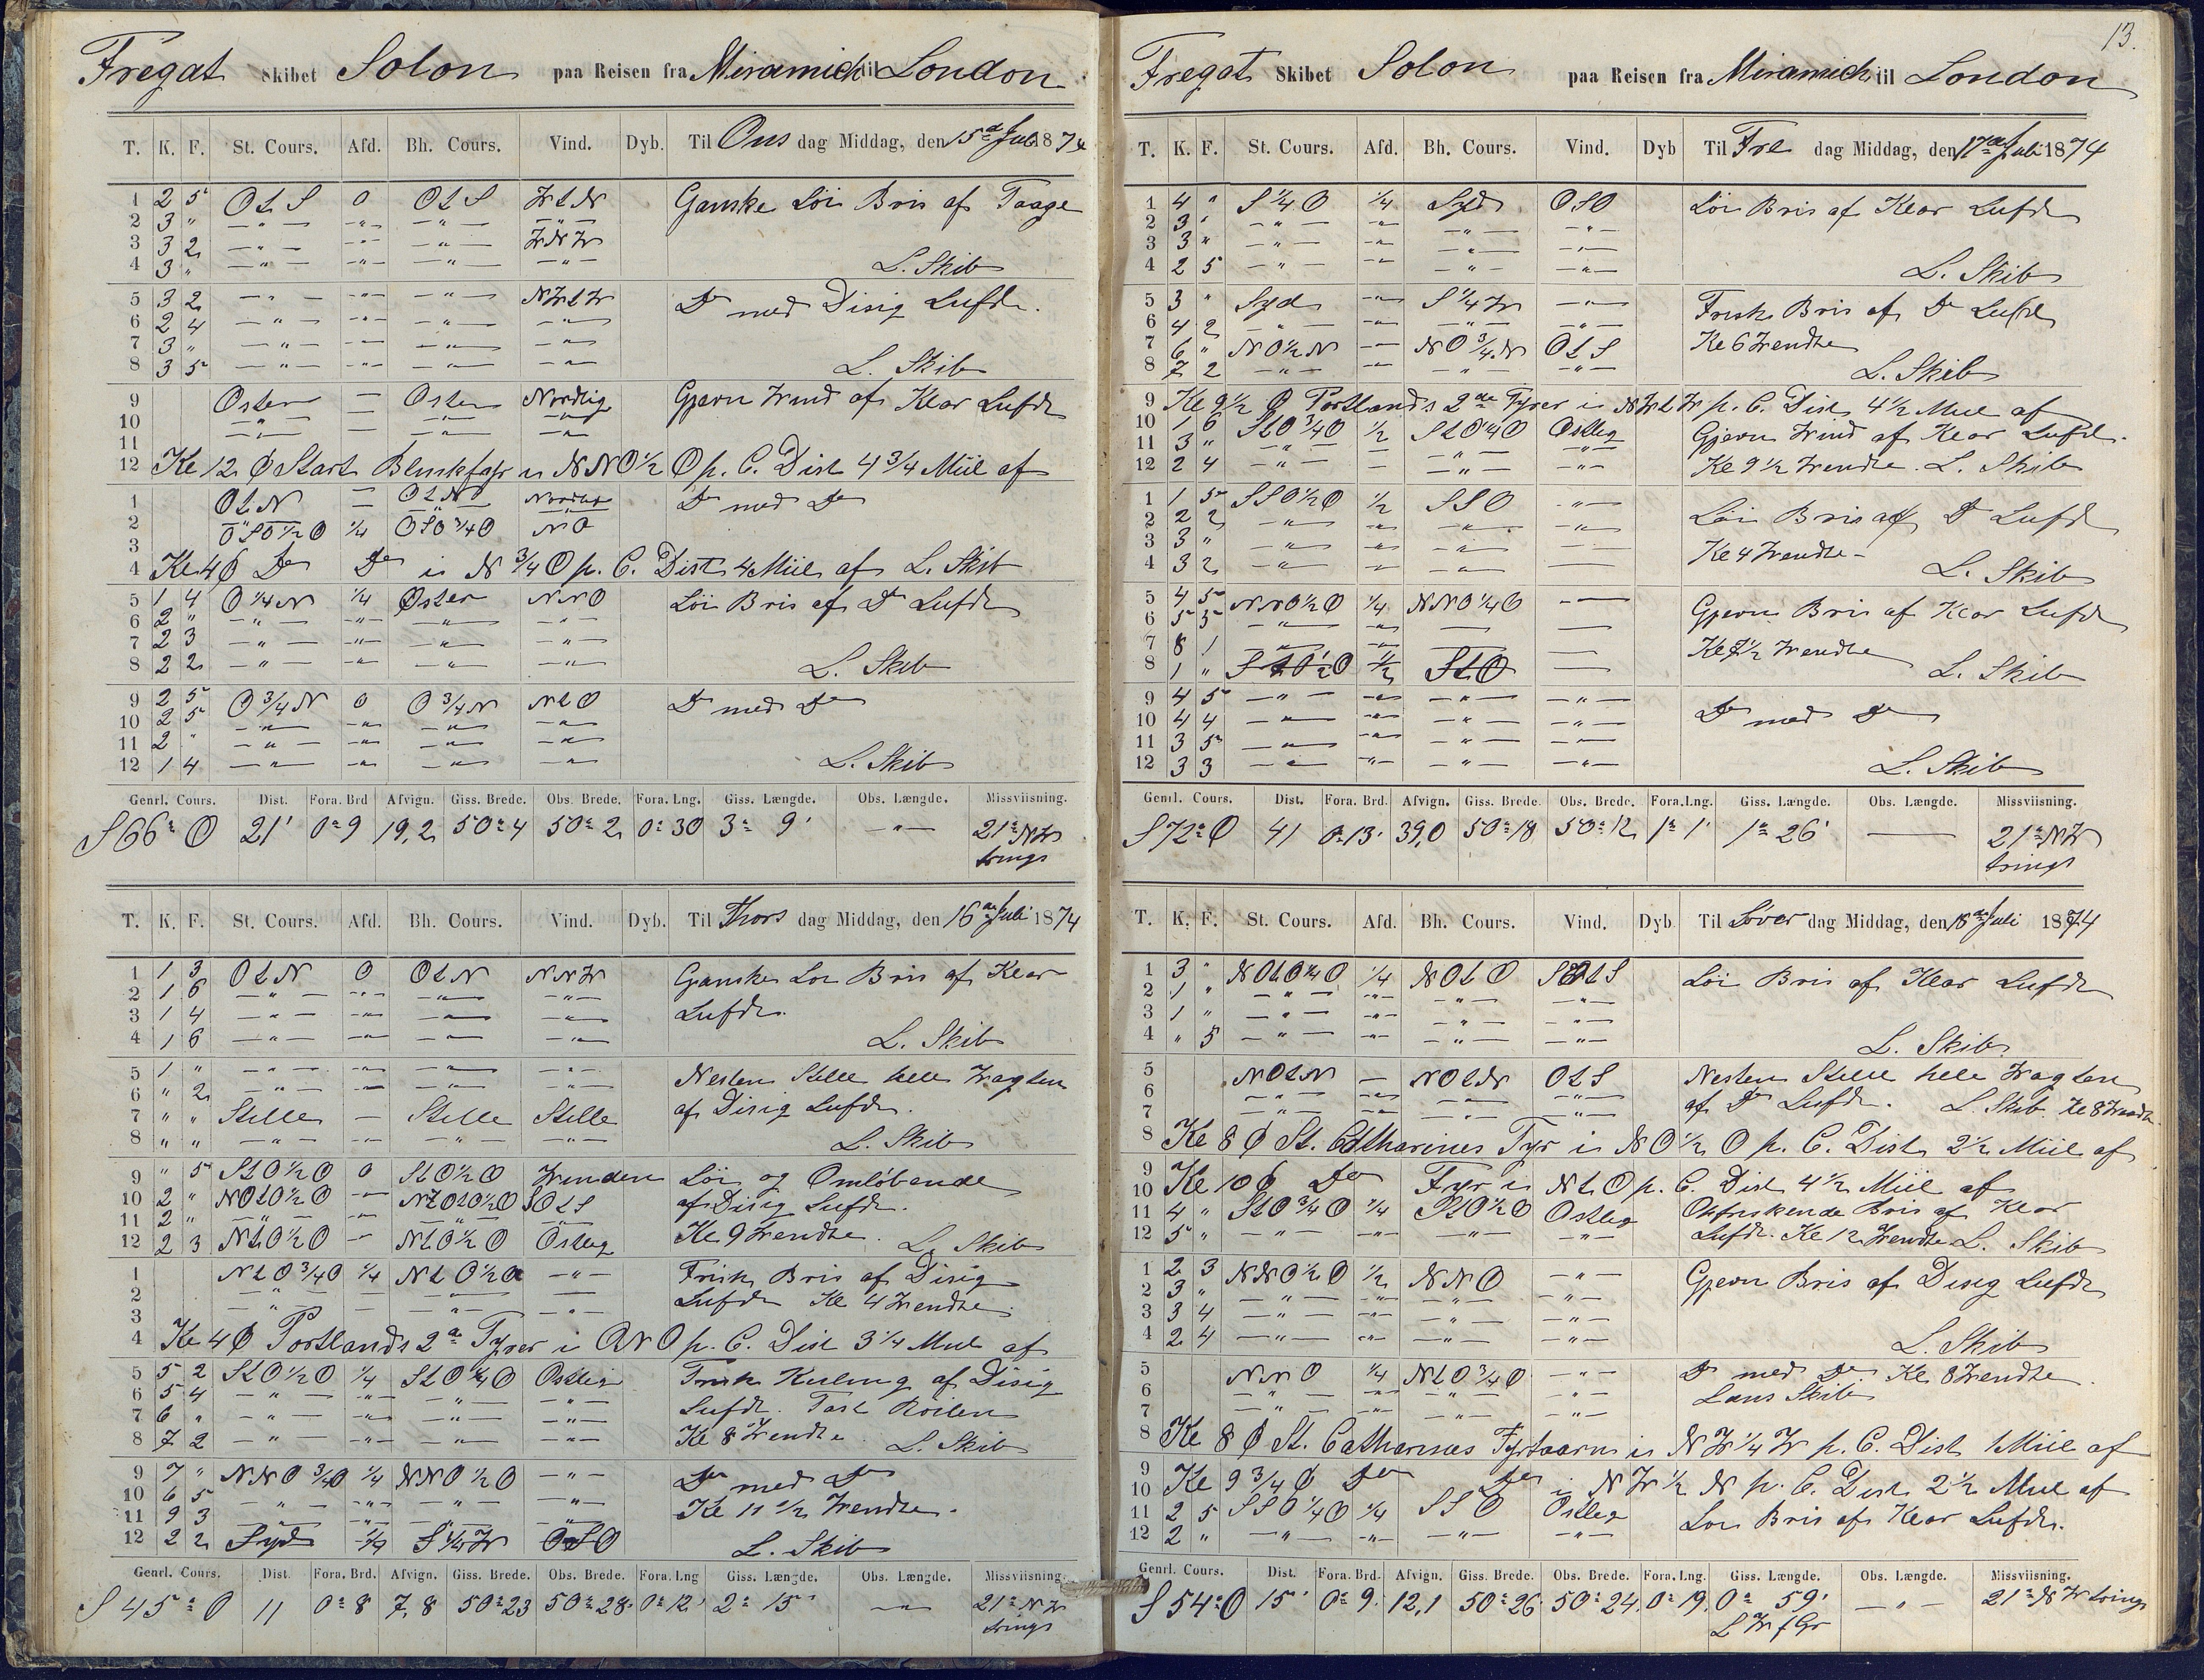 Fregat Skibet Solon paa Reisen fra Miramich til London
T. K. F. St. Cours. Afd. Bh. Cours. Vind. Dyb. Til Ons dag Middag, den 15de Juli 1874
1 2 5 OtS 0 OtS WtN Ganske Löi Bris af Taage
2 3 " — " — — " — — " — — " —
3 3 2 — " — — " — — " — WNW
4 3 " — " — — " — — " — — " — L. Skib
5 3 2 — " — — " — — " — NWtW Do med Disig Lufdt.
6 2 4 — " — — " — — " — — " —
7 3 " — " — — " — — " — — " —
8 3 5 — " — — " — — " — — " — L. Skib
9 Osten — Osten Nordlig Gjevn Wind af Klar Lufdt
10 — " — — — " — — " —
11 — " — — — " — — " —
12 Kl 12 Ø Start Blinkfyr i NNO½O p. C. Dist 4¾ Miil af
1 OtN — OtN Nordlig Do med Do
2 — " — — — " — — " —
3 OSO½O ¼ OSO¾O NO
4 Kl 4 Ø Do Do i N¾O p. C. Dist 4 Miil af L. Skib
5 1 4 O¼N ¼ Öster NNO Löi Bris af Do Lufdt
6 2 " — " — — " — — " — — " —
7 2 3 — " — — " — — " — — " —
8 2 2 — " — — " — — " — — " — L. Skib
9 2 5 O¾N 0 O¾N NtO Do med Do
10 2 5 — " — — " — — " — — " —
11 2 " — " — — " — — " — — " —
12 1 4 — " — — " — — " — — " — L. Skib
Genrl. Cours. Dist. Fora. Brd Afvign. Giss. Brede. Obs. Brede. Fora. Lng. Giss. Længde. Obs. Længde. Missviisning.
S 66° O 21' 0° 9 19,2 50° 4 50° 2 0° 30 3° 9' — " — 21° NW
trings
T. K. F. St. Cours. Afd. Bh. Cours. Vind. Dyb. Til Thors dag Middag, den 16de Juli 1874
1 1 3 OtN 0 OtN NNW Ganske Löi Bris af Klar
2 1 6 — " — — " — — " — — " —
3 1 4 — " — — " — — " — — " — Lufdt.
4 1 6 — " — — " — — " — — " — L. Skib
5 1 " — " — — " — — " — — " — Nesten Stille hele Wagten
6 " 2 — " — — " — — " — — " — af Disig Lufdt.
7 " " Stille — Stille Stille
8 " " — " — — " — — " — — " — L. Skib
9 " 5 StO½O 0 StO½O Winden Löi og Omlöbende
10 2 " NOtO½O — NOtO½O SOtS af Disig Lufdt.
11 2 " — " — — " — — " — — " —
12 2 3 NtO½O — NtO½O Östlig Kl 9 Wendte. L. Skib
1 NtO¾O ¼ NtO½O — " — Frisk Bris af Disig
2 — " — — — " — — " — Lufdt Kl 4 Wendte.
3 — " — — — " — — " —
4 Kl 4 Ø Portlands 2de Fyrer i ONO p. C. Dist 3¼ Miil af
5 5 2 StO½O ¼ StO¼O Ostlig Frisk Kuling af Disig
6 5 4 — " — — " — — " — — " — Lufdt. Fast Roilen
7 6 " — " — — " — — " — — " —
8 7 2 — " — — " — — " — — " — Kl 8 Wendte L. Skib
9 7 " NNO¾O ¼ NNO½O — " — Do med Do
10 6 5 — " — — " — — " — — " — Kl 11½ Wendte.
11 9 3 — " — — " — — " — — " —
12 2 2 Syd ¼ S¼W OSO L. Skib
Genrl. Cours. Dist. Fora. Brd. Afvign. Giss. Brede. Obs. Brede. Fora. Lng Giss. Længde. Obs. Længde. Missviisning.
S 45° O 11 0° 8 7,8 50° 23 50° 28. 0° 12' 2° 15' — " — 21° NW
trings
13.
Fregat Skibet Solon paa Reisen fra Miramich til London
T. K. F. St. Cours. Afd. Bh. Cours. Vind. Dyb Til Fre dag Middag, den 17de Juli 1874
1 4 " S¼O ¼ Syd OSO Löi Bris af Klar Lufdt
2 3 " — " — — " — — " — — " —
3 3 " — " — — " — — " — — " —
4 2 5 — " — — " — — " — — " — L. Skib
5 3 " Syd — " — S¼W — " — Frisk Bris af Do Lufdt
6 4 2 — " — — " — — " — — " —
7 6 " NO½N — " — NO¾N OtS Kl 6 Wendte
8 7 2 — " — — " — — " — — " — L. Skib
9 Kl 9½ Ø Portlands 2de Fyrer i NWtW p. C. Dist 4½ Miil af
10 1 6 StO¾O ½ StO¼O Ostlig Gjevn Wind af Klar Lufdt.
11 3 " — " — — — " — — " —
12 2 4 — " — — — " — — " — Kl 9½ Wendte. L. Skib
1 1 5 SSO½O ½ SSO — " — Löi Bris af Do Lufdt
2 2 2 — " — — " — — " — — " —
3 3 " — " — — " — — " — — Kl 4 Wendte —
4 3 2 — " — — " — — " — — L. Skib
5 4 5 NNO½O ¼ NNO¼O — " — Gjevn Bris af Klar Lufdt
6 5 5 — " — — " — — —
7 8 1 — " — — " — — — Kl 7½ Wendte
8 1 " StO½O ½ StO — L. Skib
9 4 5 — " — — " — — " — — " — Do med Do
10 4 4 — " — — " — — " — — " —
11 3 5 — " — — " — — " — — " —
12 3 3 — " — — " — — " — — " — L. Skib
Genrl. Cours. Dist. Fora. Brd. Afvign. Giss. Brede. Obs. Brede. Fora. Lng. Giss. Længde. Obs. Længde. Missviisning.
S 72° O 41 0° 13' 39,0 50° 18 50° 12 1° 1' 1° 26' — 21° NW
trings
T. K. F. St. Cours. Afd. Bh. Cours. Vind. Dyb Til Löver dag Middag, den 18de Juli 1874
1 3 " NOtO¼O ¼ NOtO SOtS Löi Bris af Klar Lufdt
2 1 " — " — — " — — " — — " —
3 1 " — " — — " — — " — — " —
4 " 5 — " — — " — — " — — " — L. Skib
5 NOtN — NOtN OtS Nesten Stille hele Wagten
6 — " — — " — — " — — " — af Do Lufdt. L. Skib Kl 8 Wendte
7 — " — — " — — " — — " —
8 Kl 8 Ø St. Catharines Fyr i NO½O p. C. Dist 2½ Miil af
9 Kl 10 Ø Do Fyr i NtO p. C. Dist 4½ Miil af
10
11 4 " StO¾O ¼ StO½O Ostlig Opfriskende Bris af Klar
12 5 " — " — — " — — " — — " — Lufdt. Kl 12 Wendte L. Skib
1 2 3 NNO½O ½ NNO — " — Gjevn Bris af Disig Lufdt
2 3 " — " — — " — — " — — " —
3 3 4 — " — — " — — " — — " —
4 2 4 — " — — " — — " — — " — L. Skib
5 NNO ¼ NtO¾O — " — Do med Do Kl 8 Wendte.
6 — " — — " — — " — — " — Lans Skib
7 — " — — " — — " — — " —
8 Kl 8 Ø St. Catharines Fyrtaarn i NW¼W p. C. Dist 1 Miil af
9 Kl 9¾ Ø Do Do i NW½N p. C. Dist 2½ Miil af
10
11 2 5 SSO¼O ¼ SSO Ostlig Löi Bris af Klar Lufdt.
12 2 " — " — — " — — " — — " —
Genrl. Cours. Dist. Fora. Brd. Afvign. Giss. Brede. Obs. Brede. Fora. Lng. Giss. Længde. Obs. Længde. Missviisning.
S 54° O 15' 0° 9. 12,1 50° 26 50° 24. 0° 19. 0° 59' — " — 21° NW trings
L W f Gr